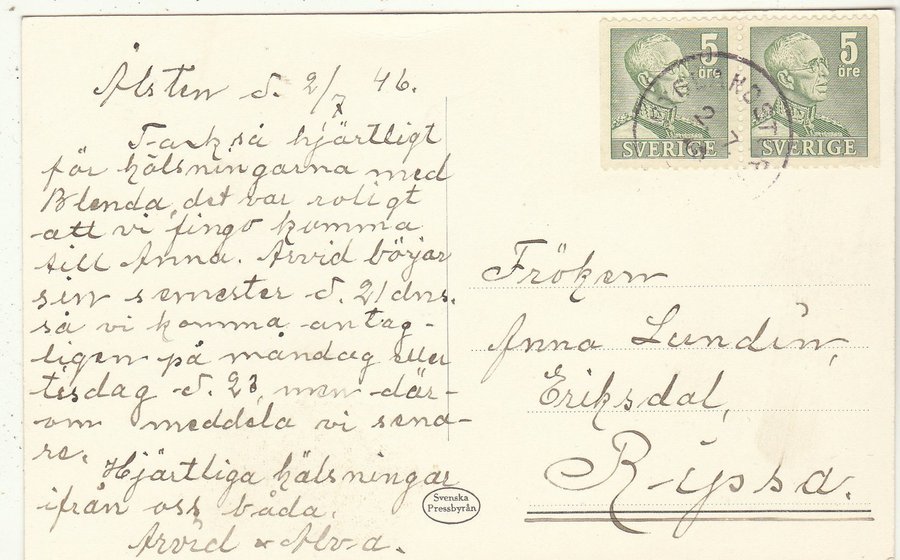 Ålsten d. 2/7 46.
Tack så hjärtligt
för hälsningarna med
Blenda, det var roligt
att vi fingo komma
till Anna. Arvid börjar
sin semester d. 21 dns.
så vi komma antag-
ligen på måndag eller
tisdag d. 23, men där-
om meddela vi send-
re.
Hjärtliga hälsningar
ifrån oss båda.
Arvid & Alva.
5
öre
SVERIGE
5
öre
SVERIGE
2 7
Fröken
Anna Lundin,
Eriksdal,
Rypsa.
Svenska
Pressbyrån